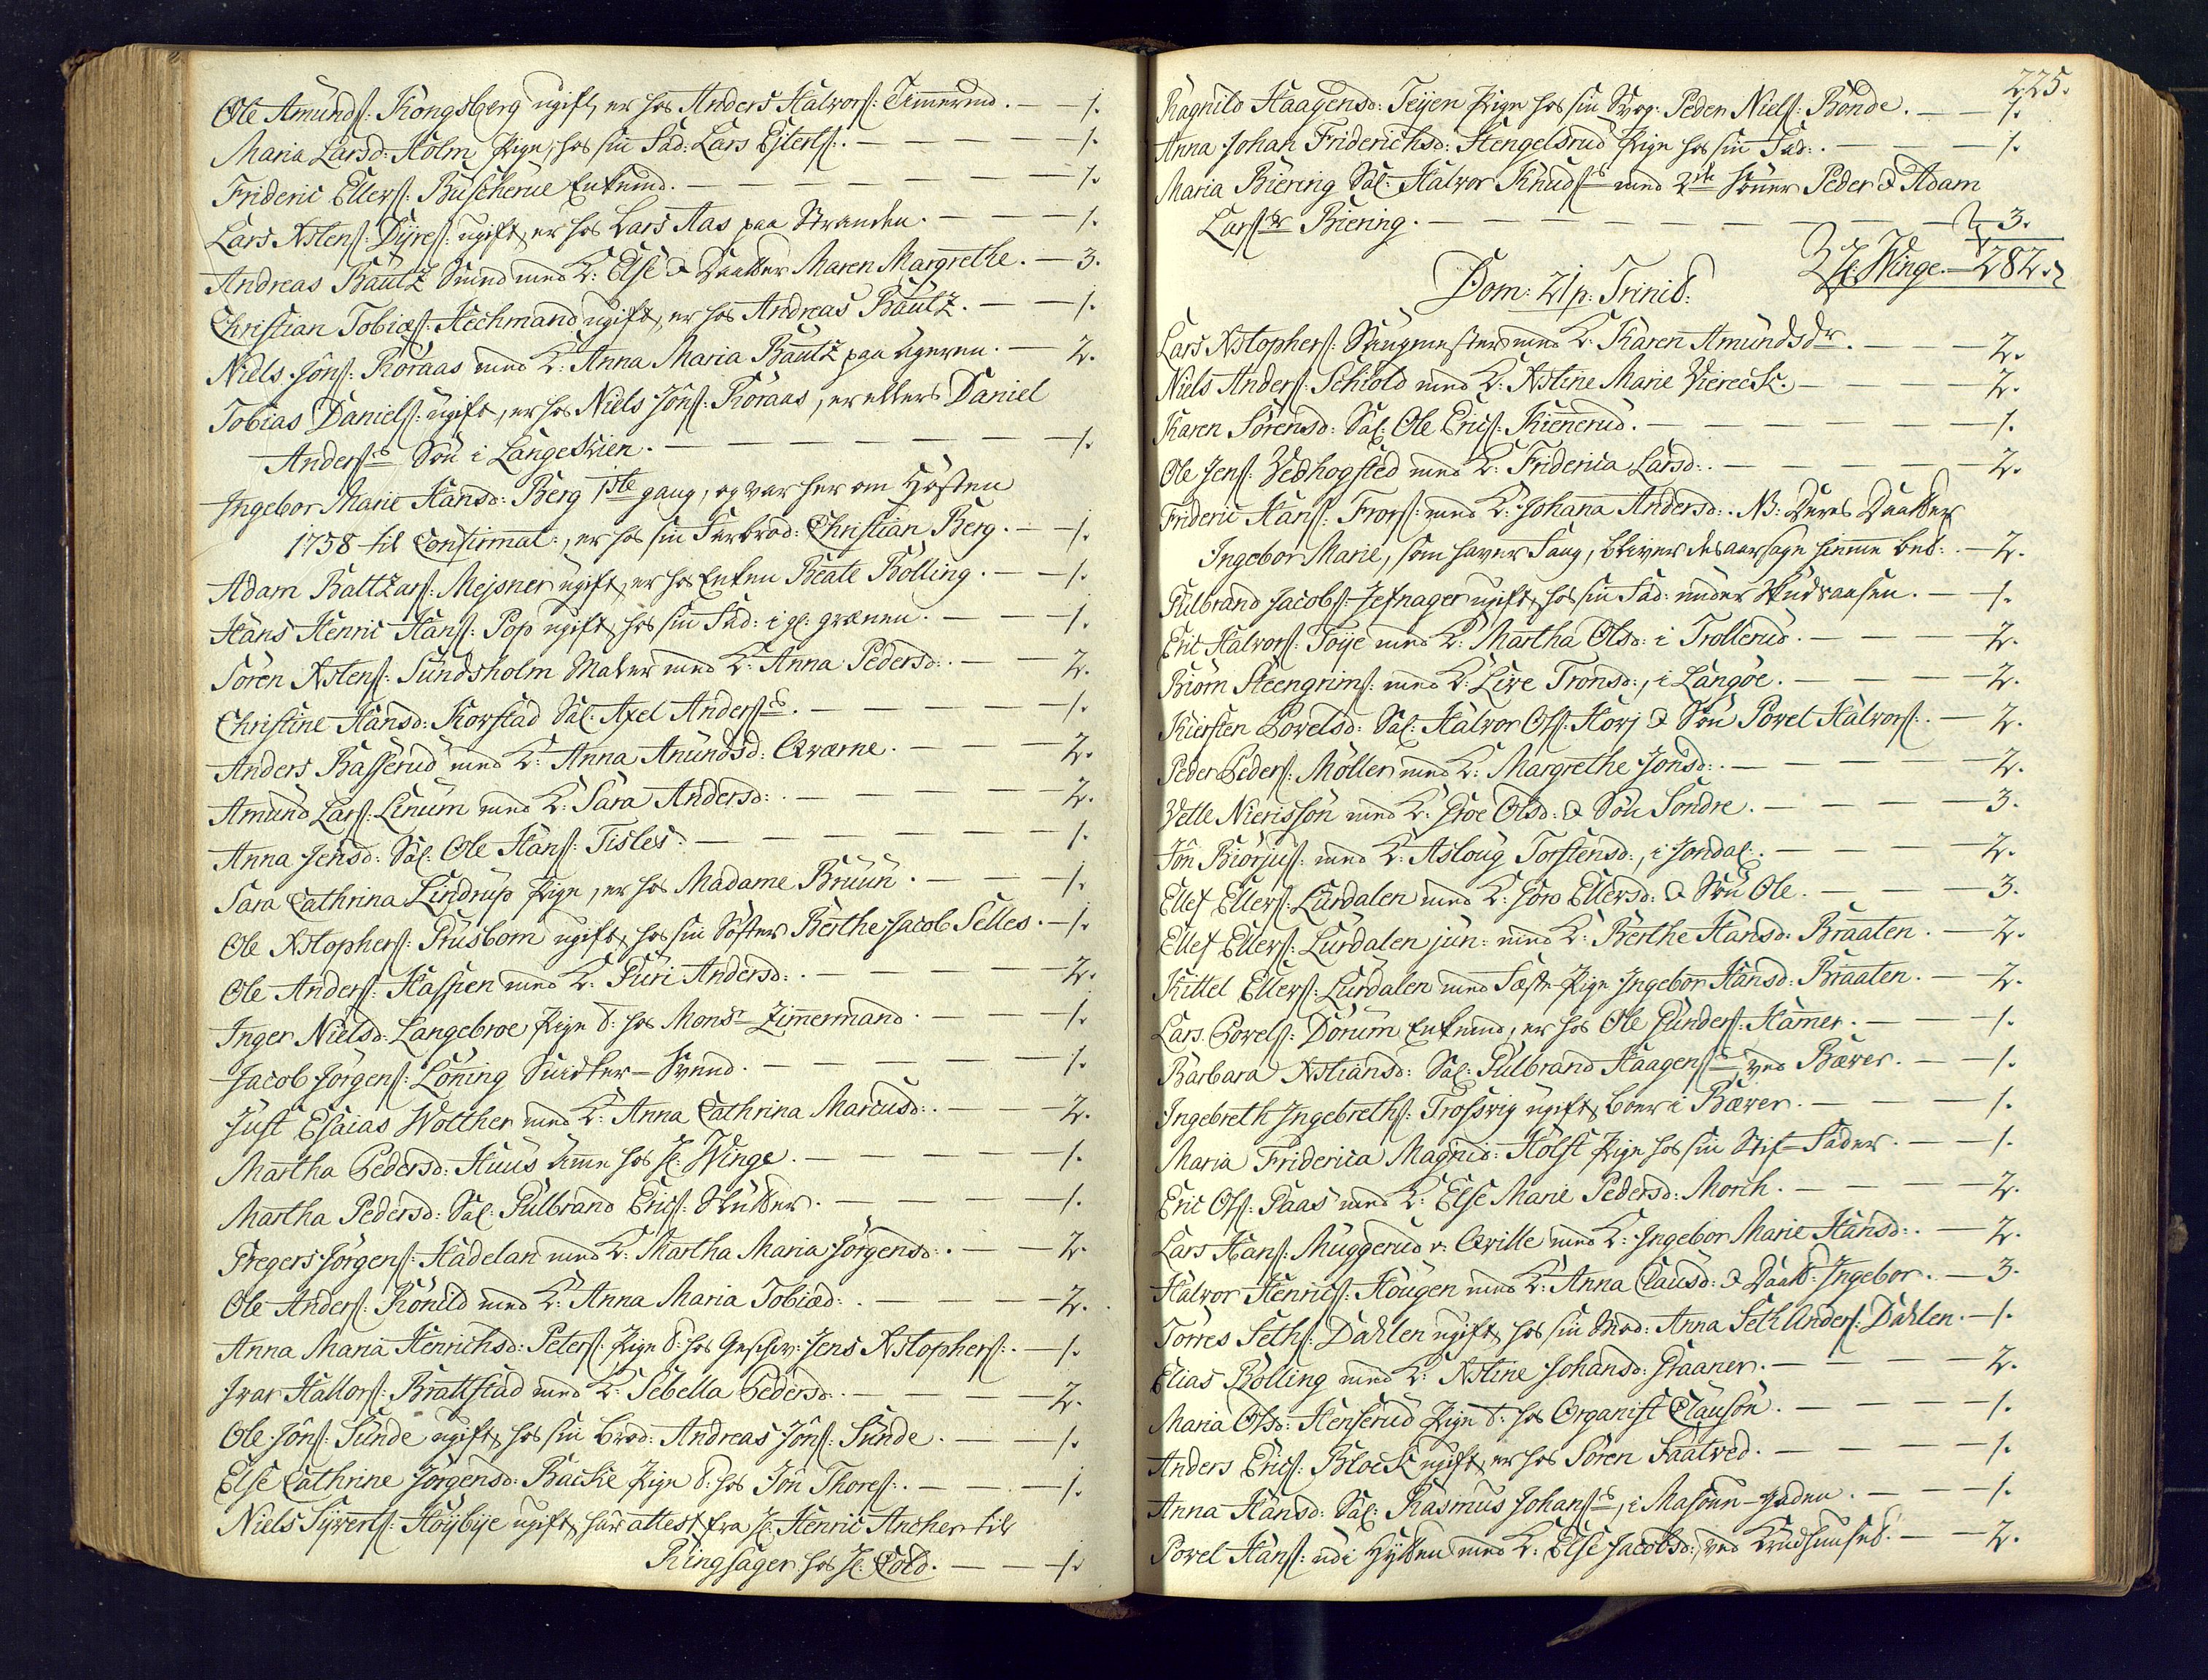 Ole Amunds: Kongsberg ugift, er hos Anders Halvors: Timmermd. — 1.
Maria Larsd: Holm Pige, hos sin Fad: Lars Ejlerts:. — 1.
Frideric Ellers: Buskerue Enkemd. — 1.
Lars Xstens: Dyres: ugift, er hos Lars Aas paa Stranden. — 1.
Andreas Bautz Smed med K: Else & Daatter Maren Margrethe. — 3.
Christian Tobiæs: Hechmand ugift, er hos Andreas Bautz. — 1.
Niels Jöns: Röraas med K: Anna Maria Bautz paa Ageren. — 2.
Tobias Daniels: ugift, er hos Niels Jöns: Röraas, er ellers Daniel
Anders:s Sön i Langeskien. — 1.
Ingebor Marie Hansd: Berg 1ste gang, og var her om Hösten
1758 til Confirmat:, er hos sin Farbrod: Christian Berg. — 1.
Adam Baltzars: Mejsner ugift, er hos Enken Beate Bölling. — 1.
Hans Henric Hans: Pop ugift, hos sin Fad: i gl: grænen. — 1.
Sören Xstens: Sundsholm Maler med K: Anna Pedersd:. — 2.
Christine Hansd: Korstad Sal: Axel Anders:s. — 1.
Anders Basserud med K: Anna Amundsd: Qværne. — 2.
Amund Lars: Linum med K: Sara Andersd:. — 2.
Anna Jensd: Sal: Ole Hans: Tisles: — 1.
Sara Cathrina Lindrup Pige, er hos Madame Bruun. — 1.
Ole Xstophers: Prusbom ugift, hos sin Söster Berthe Jacob Selles. — 1.
Ole Anders: Haspen med K: Guri Andersd:. — 2.
Inger Nielsd: Langebroe Pige t: hos Monsr Zimermand. — 1.
Jacob Jörgens: Löning Snidker-Svend. — 1.
Just Esaias Wolther med K: Anna Cathrina Marcusd:. — 2.
Martha Pedersd: Huus Amme hos Hr: Winge. — 1.
Martha Pedersd: Sal: Gulbrand Erics: Skutter. — 1.
Gregers Jörgens: Hadelan med K: Martha Maria Jörgensd:. — 2.
Ole Anders: Rönild med K: Anna Maria Tobiæd:. — 2.
Anna Maria Henrichsd: Peters: Pige t: hos Geschw: Jens Xstophers:. — 1.
Ivar Hallors: Brattstad med K: Sebella Pedersd:. — 2.
Ole Jöns: Sunde ugift, hos sin Brod: Andreas Jöns: Sunde. — 1.
Else Cathrine Jörgensd: Backe Pige t: hos Jön Thores:. — 1.
Niels Syverts: Höybye ugift, har attest fra Hr: Henric Ancher til
Ringsager hos Hr: Cold. — 1.
225.
Ragnild Haagensd: Teyen Pige hos sin Svog: Peder Niels: Bonde. — 1.
Anna Johan Friderichsd: Hengelsrud Pige hos sin Fad:. — 1.
Maria Biering Sal: Halvor Knuds:s med 2de Sönner Peder & Adam
Lars:r Biering. — 3.
Hr: Winge. — 282.
Dom: 21 p: Trinit:
Lars Xstophers: Stugmester med K: Karen Amundsdr. — 2.
Niels Anders: Schiold med K: Xstine Marie Viereck. — 2.
Karen Sörensd: Sal: Ole Erics: Kienerud. — 1.
Ole Jens: Vedhogsted med K: Friderica Larsd:. — 2.
Frideric Hans: Frors: med K: Johana Andersd:. NB: Deres Daatter
Ingebor Marie, som haver Tang, bliver desaarsage hiemme bet:. — 2.
Gulbrand Jacobs: Jefnager ugift, hos sin Fad: under Skudraasen. — 1.
Eric Halvors: Toye med K: Martha Olsd: i Trollerud. — 2.
Biörn Steengrims: med K: Live Tronsd:, i Langöe. — 2.
Kiersten Povelsd: Sal: Halvor Ols: Horj & Sön Povel Halvors:. — 2.
Peder Peders: Möller med K: Margrethe Jonsd:. — 2.
Vetle Nierissön med K: Groe Olsd: & Sön Söndre. — 3.
Jön Biörjus: med K: Asloug Torstensd:, i Jondal:. — 2.
Ellef Ellers: Lurdalen med K: Joro Ellersd: & Sön Ole. — 3.
Ellef Ellers: Lurdalen jun: med K: Berthe Hansd: Braaten. — 2.
Kittel Ellers: Lurdalen med Fæste-Pige Ingebor Hansd: Braaten. — 2.
Lars Povels: Dorum Enkemd, er hos Ole Gunders: Hamer. — 1.
Barbara Xstiansd: Sal: Gulbrand Haagens:s, ved Bæver. — 1.
Ingebreth Ingebreths: Trosvig ugift, boer i Bæver. — 1.
Maria Friderica Magnid: Holst Pige hos sin Stif-Fader. — 1.
Eric Ols: Gaas med K: Else Marie Pedersd: Morch. — 2.
Lars Hans: Muggerud v. Qville med K: Ingebor Marie Hansd:. — 2.
Halvor Henrics: Hougen med K: Anna Clausd: & Daatt: Ingebor. — 3.
Torres Seths: Dahlen ugift, hos sin Mod: Anna Seth Anders: Dahlen. — 1.
Elias Bölling med K: Xstine Johansd: Graaner. — 2.
Maria Olsd: Henserud Pige t: hos Organist Clauson. — 1.
Anders Erics: Block ugift, er hos Sören Saatved. — 1.
Anna Hansd: Sal: Rasmus Johans:s, i Masoun-gaden. — 1.
Povel Hans: udi Hytten med K: Else Jacobsd:, ved Krudhuuset. — 2.